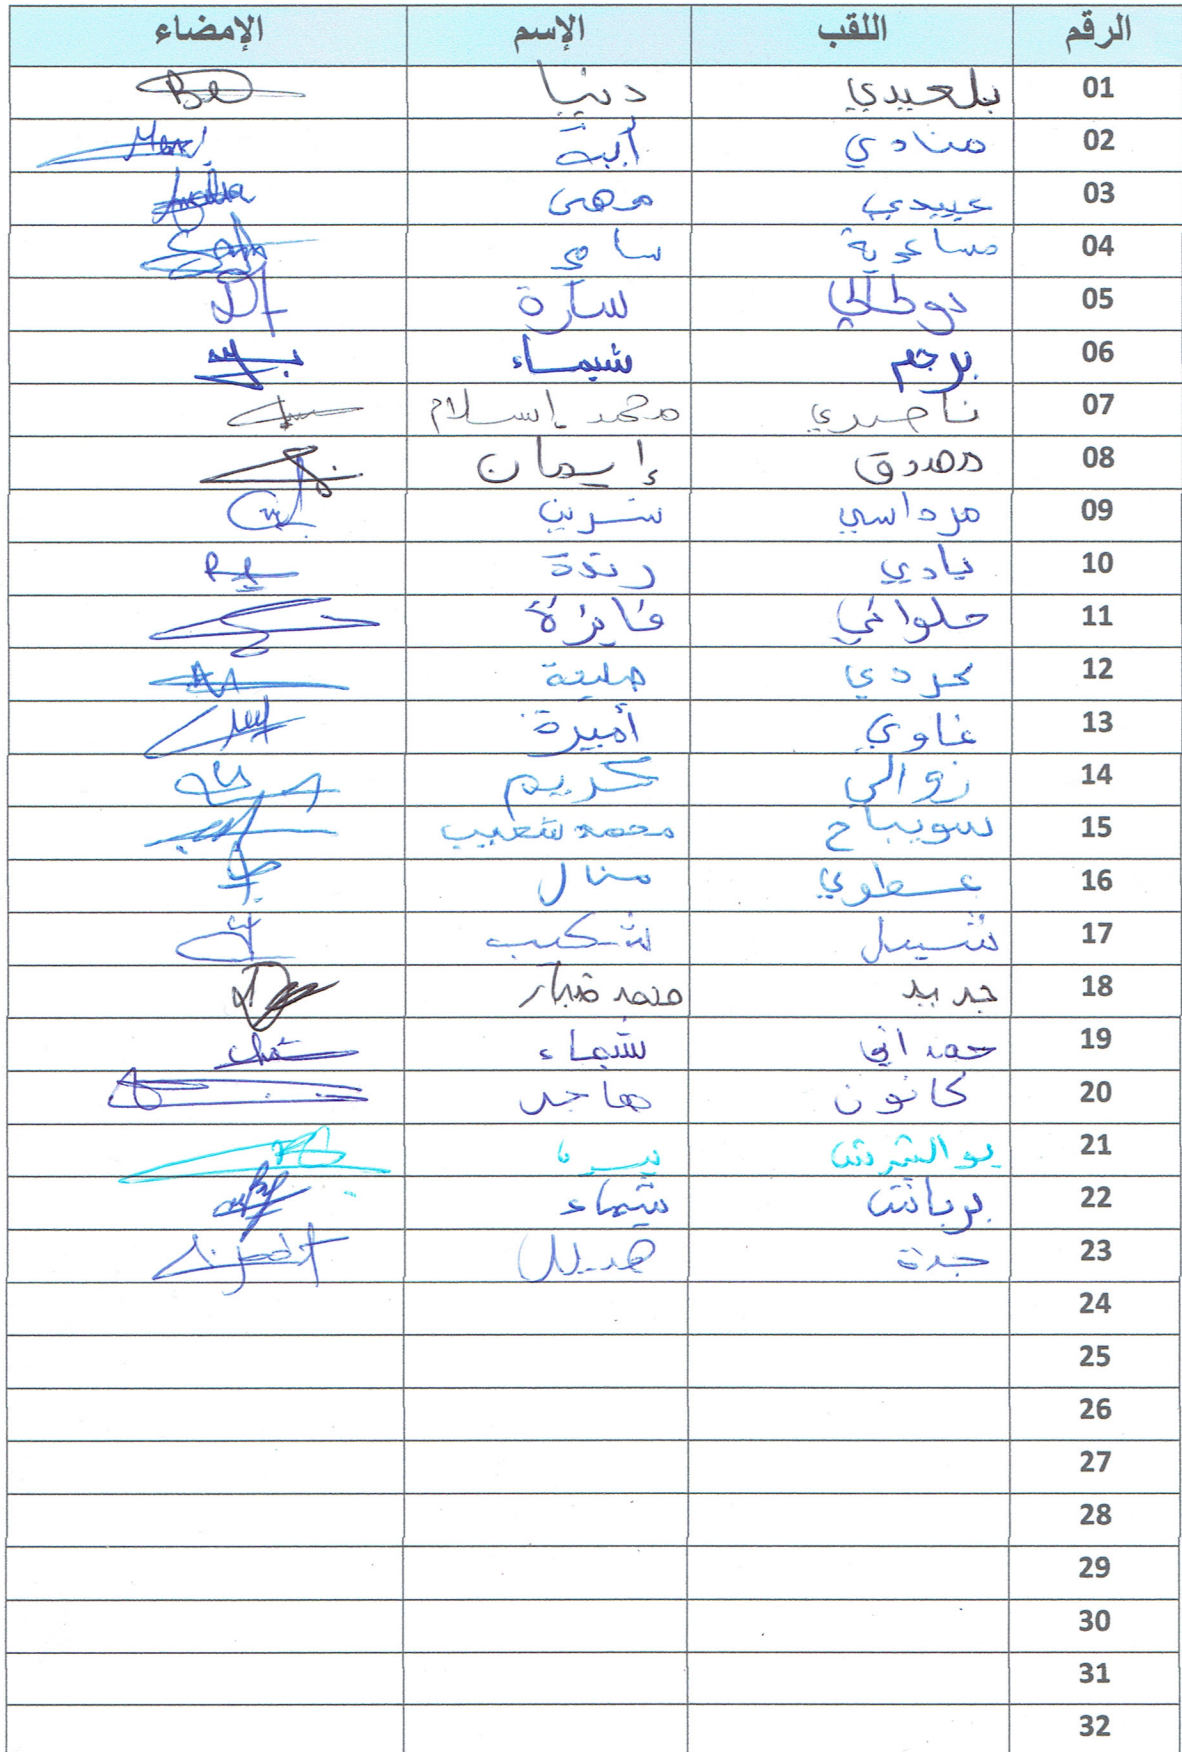 الرقم اللقب الإسم الإمضاء
01 بلعيدي دنيا
02 منادي آية
03 عبيدي مهى
04 مساعدية سامي
05 سارة
06 برجم شيماء
07 ناصري محمد إسلام
08 مصدق إيمان
09 مرداسي نسرين
10 بادي رندة
11 حلواني فايزة
12 مليكة
13 غاوي أميرة
14 زوالي كريم
15 سويباح محمد شعيب
16 عسطوي منال
17 شبيل شكيب
18 جديد محمد ضرار
19 حمداني شيماء
20 كانون هاجر
21
22 شيماء
23 جدة هديل
24
25
26
27
28
29
30
31
32